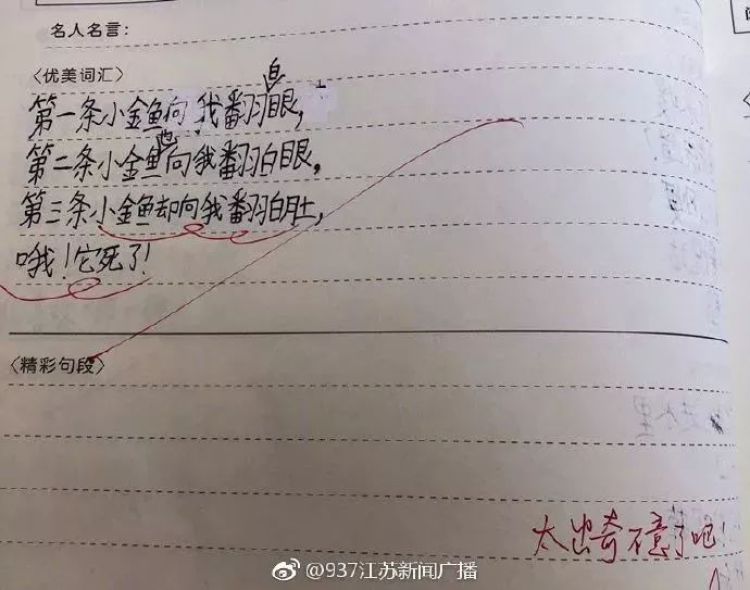 名人名言:
〈优美词汇〉
第一条小金鱼向我翻白眼,
第二条小金鱼也向我翻白眼,
第三条小金鱼却向我翻白肚,
哦!它死了!
〈精彩句段〉
太出奇不意了吧!
@937江苏新闻广播